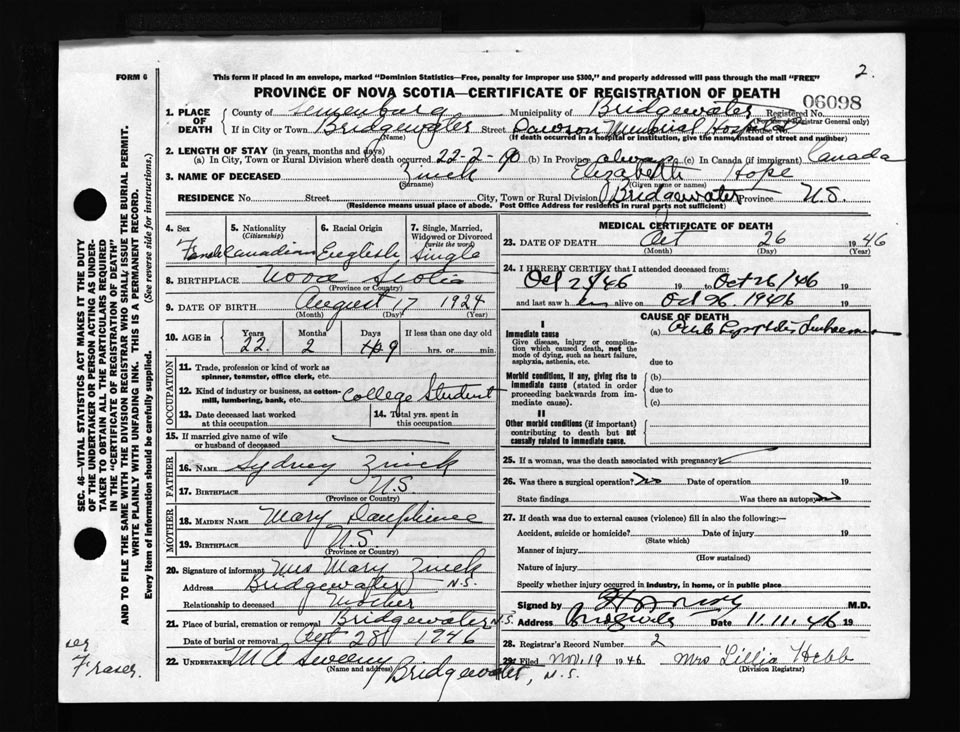 FORM 6
This form if placed in an envelope, marked "Dominion Statistics—Free, penalty for improper use $300," and properly addressed will pass through the mail "FREE"
2.
PROVINCE OF NOVA SCOTIA—CERTIFICATE OF REGISTRATION OF DEATH
06098
1. PLACE OF DEATH
County of Lunenburg Municipality of Bridgewater Registered No.
(For Registrar General only)
(Name)
If in City or Town Bridgewater Street Dawson Memorial Hospital House No.
(If death occurred in a hospital or institution, give the name instead of street and number)
2. LENGTH OF STAY (in years, months and days)
(a) In City, Town or Rural Division where death occurred 22-2- (b) In Province always (c) In Canada (if immigrant) Canada
3. NAME OF DECEASED Zinck Elizabeth Hope
(Surname) (Given name or names)
RESIDENCE No. Street City, Town or Rural Division Bridgewater Province N.S.
(Residence means usual place of abode. Post Office Address for residents in rural parts not sufficient)
4. Sex Female
5. Nationality (Citizenship) Canadian
6. Racial Origin English
7. Single, Married, Widowed or Divorced (write the word) Single
8. BIRTHPLACE Nova Scotia
(Province or Country)
9. DATE OF BIRTH August 17 1924
(Month) (Day) (Year)
10. AGE in Years 22 Months 2 Days 9 If less than one day old hrs. or min.
OCCUPATION
11. Trade, profession or kind of work as spinner, teamster, office clerk, etc.
12. Kind of industry or business, as cotton-mill, lumbering, bank, etc. College Student
13. Date deceased last worked at this occupation
14. Total yrs. spent in this occupation
15. If married give name of wife or husband of deceased
FATHER
16. NAME Sydney Zinck
17. BIRTHPLACE N.S.
(Province or Country)
MOTHER
18. MAIDEN NAME Mary Dauphinee
19. BIRTHPLACE N.S.
(Province or Country)
20. Signature of informant Mrs Mary Zinck
Address Bridgewater N.S.
Relationship to deceased Mother
21. Place of burial, cremation or removal Bridgewater N.S.
Date of burial or removal Oct 28 1946
22. UNDERTAKER M A Sweeny Bridgewater, N.S.
(Name and address)
MEDICAL CERTIFICATE OF DEATH
23. DATE OF DEATH Oct 26 1946
(Month) (Day) (Year)
24. I HEREBY CERTIFY that I attended deceased from:
Oct 25/46 19 to Oct 26/46 19
and last saw h er alive on Oct 26 1946 19
CAUSE OF DEATH
I
Immediate cause
Give disease, injury or complication which caused death, not the mode of dying, such as heart failure, asphyxia, asthenia, etc.
(a)
due to
Morbid conditions, if any, giving rise to immediate cause (stated in order proceeding backwards from immediate cause).
(b)
due to
(c)
II
Other morbid conditions (if important) contributing to death but not causally related to immediate cause.
25. If a woman, was the death associated with pregnancy?
26. Was there a surgical operation? No Date of operation 19
State findings Was there an autopsy No
27. If death was due to external causes (violence) fill in also the following:—
Accident, suicide or homicide? Date of injury 19
(State which)
Manner of injury
(How sustained)
Nature of injury
Specify whether injury occurred in industry, in home, or in public place
Signed by M.D.
Address Bridgewater Date 11.11.46 19
28. Registrar's Record Number 2
29. Filed Nov. 19 1946 Mrs Lillia Hebb
(Division Registrar)
SEC. 46—VITAL STATISTICS ACT MAKES IT THE DUTY
OF THE UNDERTAKER OR PERSON ACTING AS UNDER-
TAKER TO OBTAIN ALL THE PARTICULARS REQUIRED
IN THE "CERTIFICATE OF REGISTRATION OF DEATH"
AND TO FILE THE SAME WITH THE DIVISION REGISTRAR WHO SHALL ISSUE THE BURIAL PERMIT.
WRITE PLAINLY WITH UNFADING INK. THIS IS A PERMANENT RECORD.
Every item of information should be carefully supplied. (See reverse side for instructions.)
Fraser.